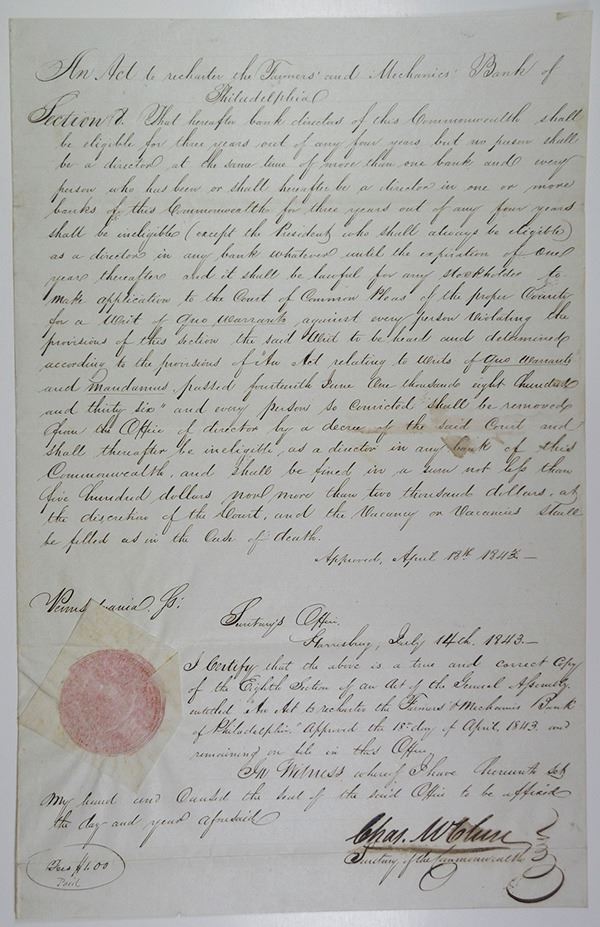 An Act to recharter the Farmers' and Mechanics' Bank of
Philadelphia
Section 8. That hereafter bank directors of this Commonwealth shall
be eligible for three years out of any four years but no person shall
be a director at the same time of more than one bank and every
person who has been or shall hereafter be a director in one or more
banks of this Commonwealth for three years out of any four years
shall be ineligible (except the President who shall always be eligible)
as a director in any bank whatever until the expiration of one
year thereafter and it shall be lawful for any stockholder to
make application to the Court of Common Pleas of the proper County
for a Writ of Quo Warranto against every person violating the
provisions of this section the said Writ to be heard and determined
according to the provisions of "An Act relating to Writs of Quo Warranto
and Mandamus, passed fourteenth June One thousand eight hundred
and thirty six" and every person so convicted shall be removed
from the Office of director by a decree of the said Court and
shall thereafter be ineligible, as a director in any bank of this
Commonwealth, and shall be fined in a sum not less than
five hundred dollars more than two thousand dollars, at
the discretion of the Court, and the Vacancy or Vacancies shall
be filled as in the Case of death.
Approved, April 18th 1843 —
Pennsylvania, Ss:
Secretary's Office.
Harrisburg, July 14th. 1843.—
I Certify that the above is a true and correct Copy
of the Eighth Section of an Act of the General Assembly,
entitled "An Act to recharter the Farmers' & Mechanics' Bank
of Philadelphia." Approved the day of April, 1843. and
remaining on file in this Office.
In Witness whereof I have hereunto set
my hand and Caused the seal of the said Office to be affixed
the day and year aforesaid
Chas. McClure
Secretary of the Commonwealth
Fees $1.00
Paid